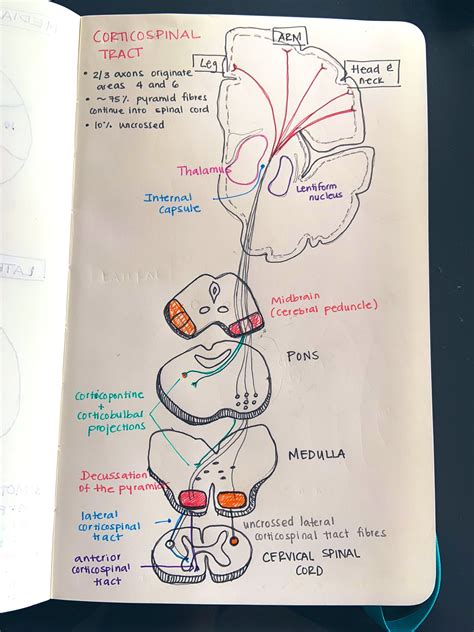 CORTICOSPINAL
TRACT
• 2/3 axons originate
areas 4 and 6
• ~75% pyramid fibres
continue into spinal cord
• 10% uncrossed
Leg
ARM
Head &
neck
Thalamus
Internal
capsule
Lentiform
nucleus
Midbrain
(cerebral peduncle)
PONS
Corticopontine
+
corticobulbal
projections
MEDULLA
Decussation
of the pyramid
lateral
corticospinal
tract
uncrossed lateral
corticospinal tract fibres
anterior
corticospinal
tract
CERVICAL SPINAL
CORD